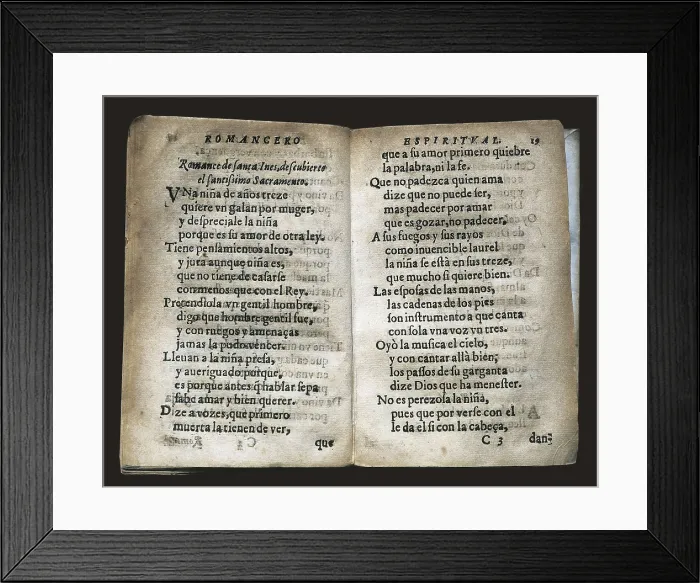 ROMANCERO
Romance de santa Ines, descubierto
el santissimo Sacramento.
VNa niña de años treze
quiere vn galan por muger,
y despreciale la niña
porque es su amor de otra ley.
Tiene pensamientos altos,
y jura aunque niña es,
que no tiene de casarse
con menos que con el Rey.
Pretendiola vn gentil hombre,
digo que hombre gentil fue,
y con ruegos y amenaças
jamas la podra vencer.
Lleuan a la niña presa,
y aueriguado porque,
es porque antes q̃ hablar sepa
sabe amar y bien querer.
Dize a vozes, que primero
muerta la tienen de ver,
que
ESPIRITVAL. 19
que a su amor primero quiebre
la palabra, ni la fe.
Que no padezca quien ama
dize que no puede ser,
mas padecer por amar
que es gozar, no padecer.
A sus fuegos y sus rayos
como inuencible laurel
la niña se està en sus treze,
que mucho si quiere bien.
Las esposas de las manos,
las cadenas de los pies
son instrumento a que canta
con sola vna voz vn tres.
Oyò la musica el cielo,
y con cantar allà bien,
los passos de su garganta
dize Dios que ha menester.
No es perezosa la niña,
pues que por verse con el
le da el si con la cabeça,
C 3 dan-